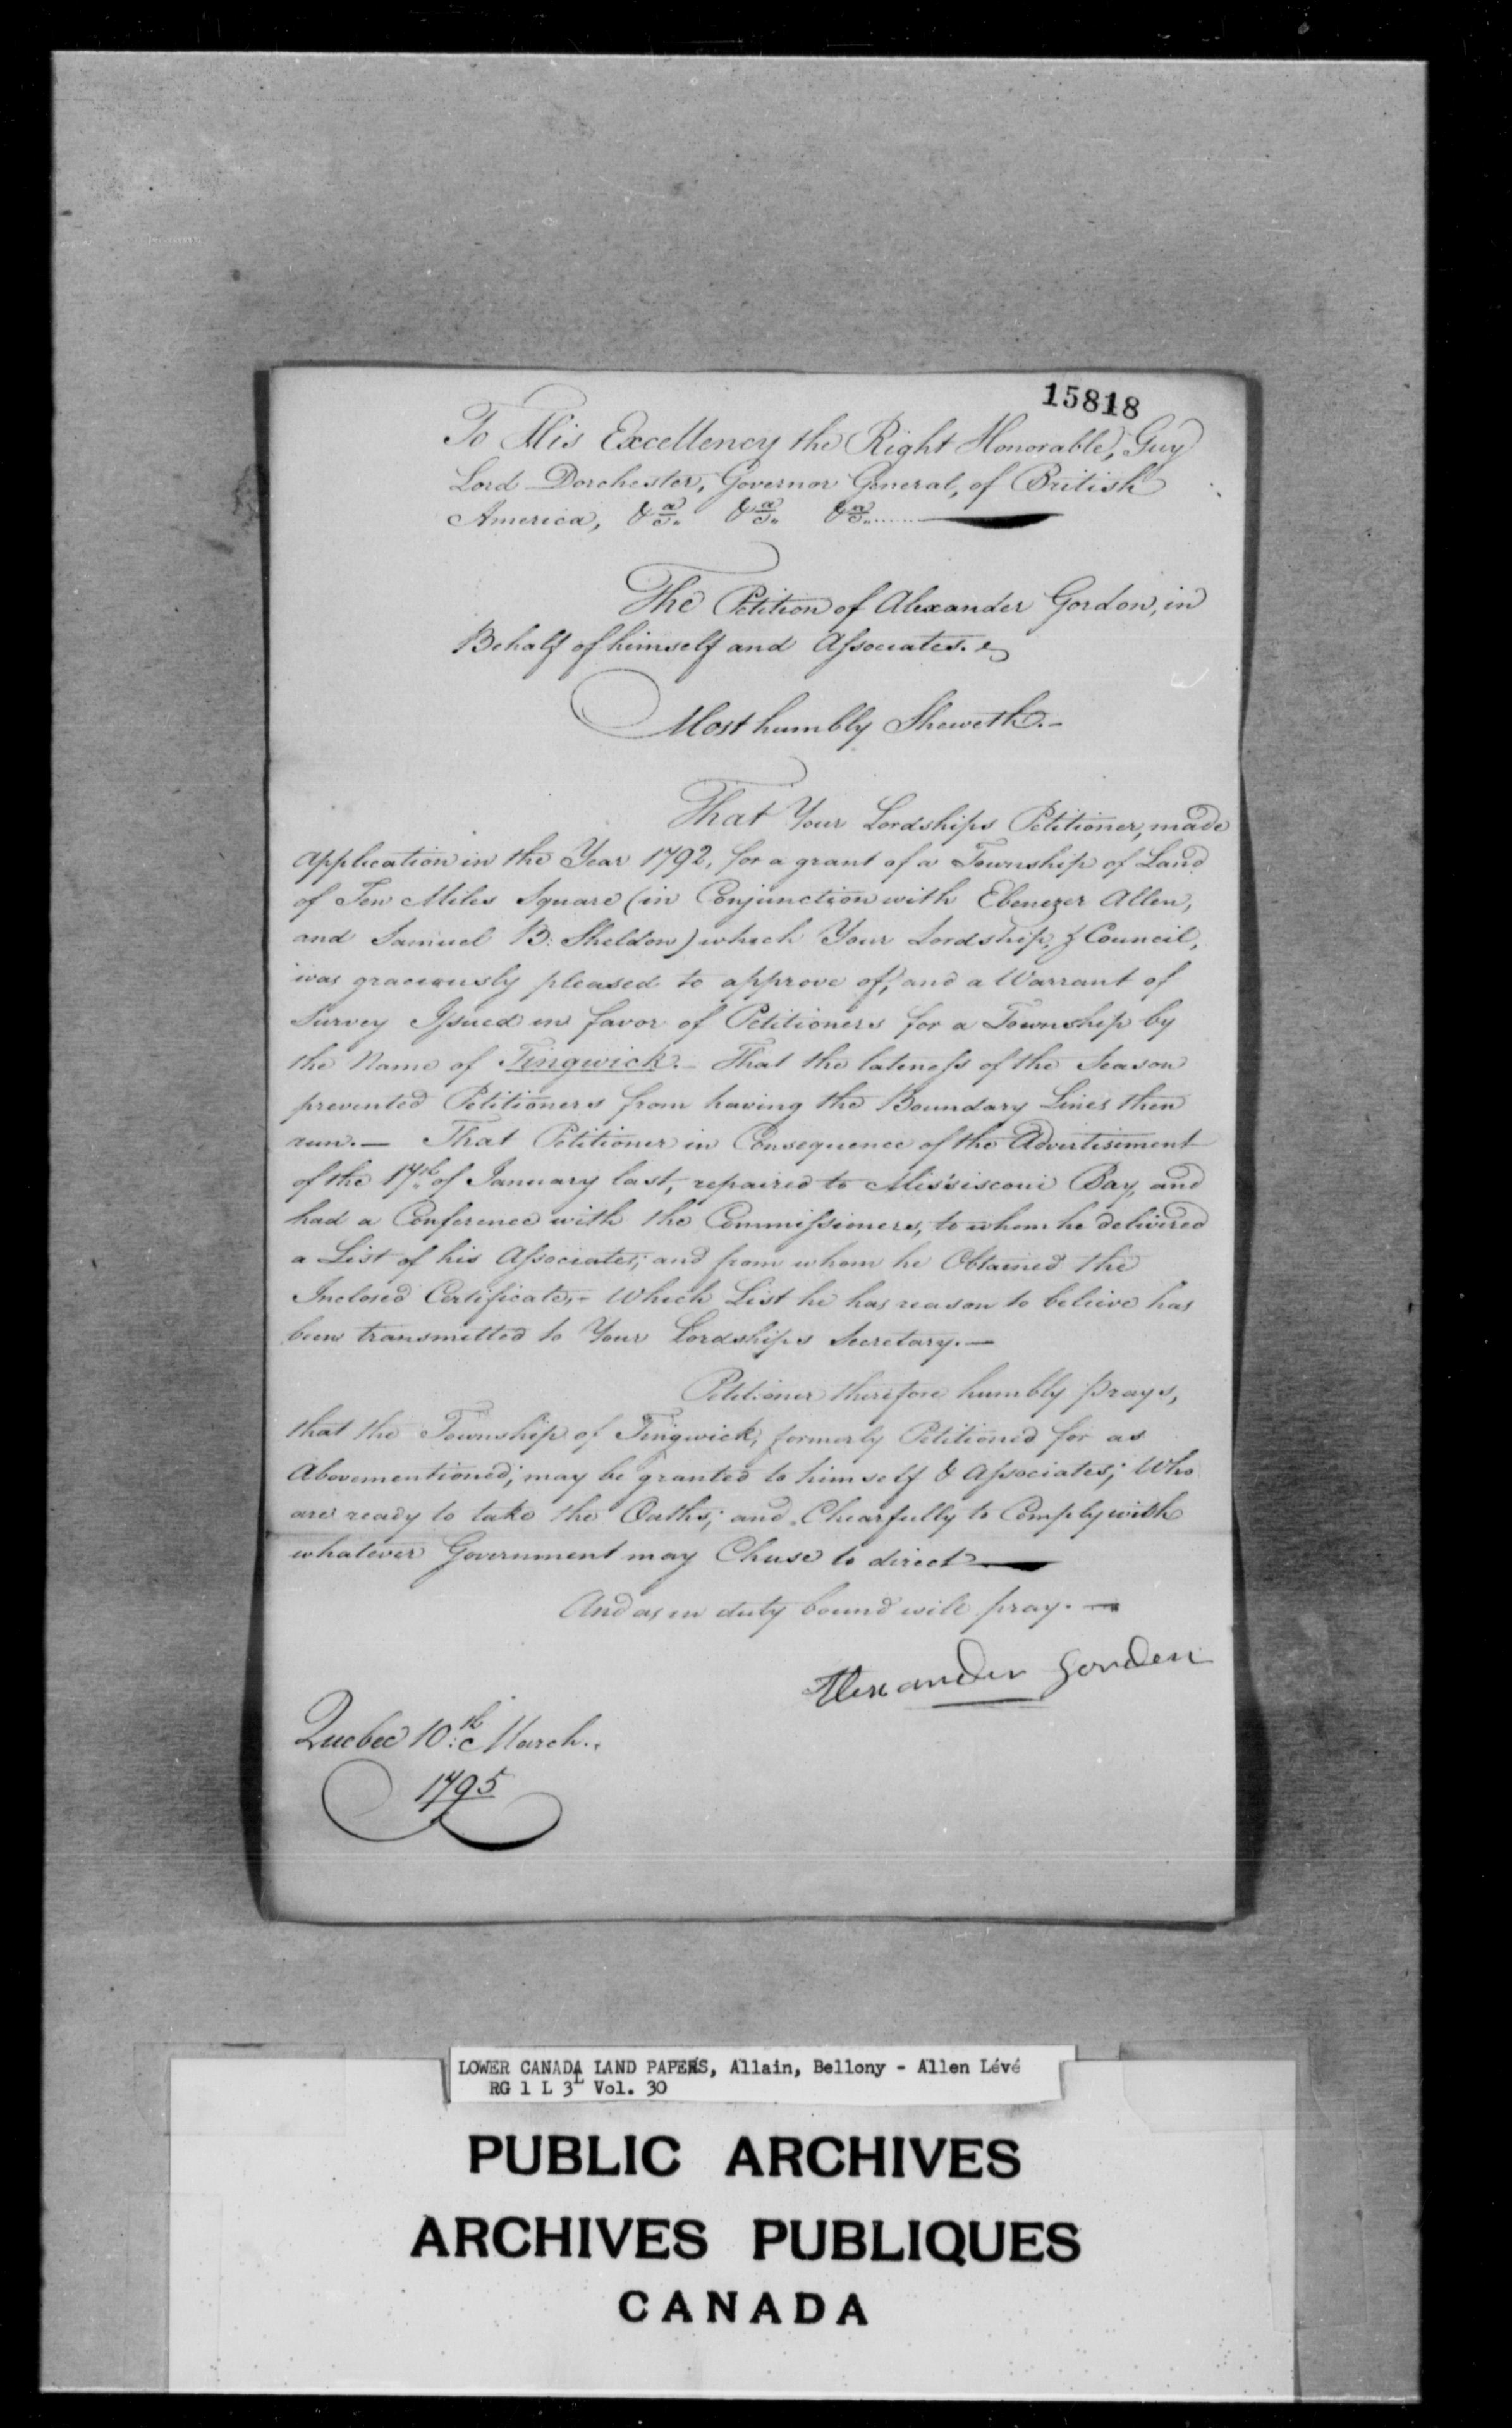 15818
To His Excellency the Right Honorable, Guy
Lord Dorchester, Governor General, of British
America, &ca. &ca. &ca.
The Petition of Alexander Gordon, in
Behalf of himself and Associates.
Most humbly Sheweth.—
That Your Lordships Petitioner, made
Application in the Year 1792, for a grant of a Township of Land
of Ten Miles Square (in Conjunction with Ebenezer Allen,
and Samuel B: Sheldon) which Your Lordship, & Council,
was graciously pleased to approve of; and a Warrant of
Survey Issued in favor of Petitioners for a Township by
the Name of Tingwick.— That the lateness of the Season
prevented Petitioners from having the Boundary Lines then
run.— That Petitioner in Consequence of the Advertisement
of the 17th of January last, repaired to Missiscoui Bay, and
had a Conference with the Commissioners, to whom he delivered
a List of his Associates; and from whom he Obtained the
Inclosed Certificate,- Which List he has reason to believe has
been transmitted to Your Lordships Secretary.—
Petitioner therefore humbly prays,
that the Township of Tingwick, formerly Petitioned for as
Abovementioned; may be granted to himself & Associates; Who
are ready to take the Oaths; and Chearfully to Comply with
whatever Government may Chuse to direct
And as in duty bound will pray.—
Alexander Gordon
Quebec 10th March..
1795
LOWER CANADA LAND PAPERS, Allain, Bellony - Allen Lévé
RG 1 L 3L Vol. 30
PUBLIC ARCHIVES
ARCHIVES PUBLIQUES
CANADA